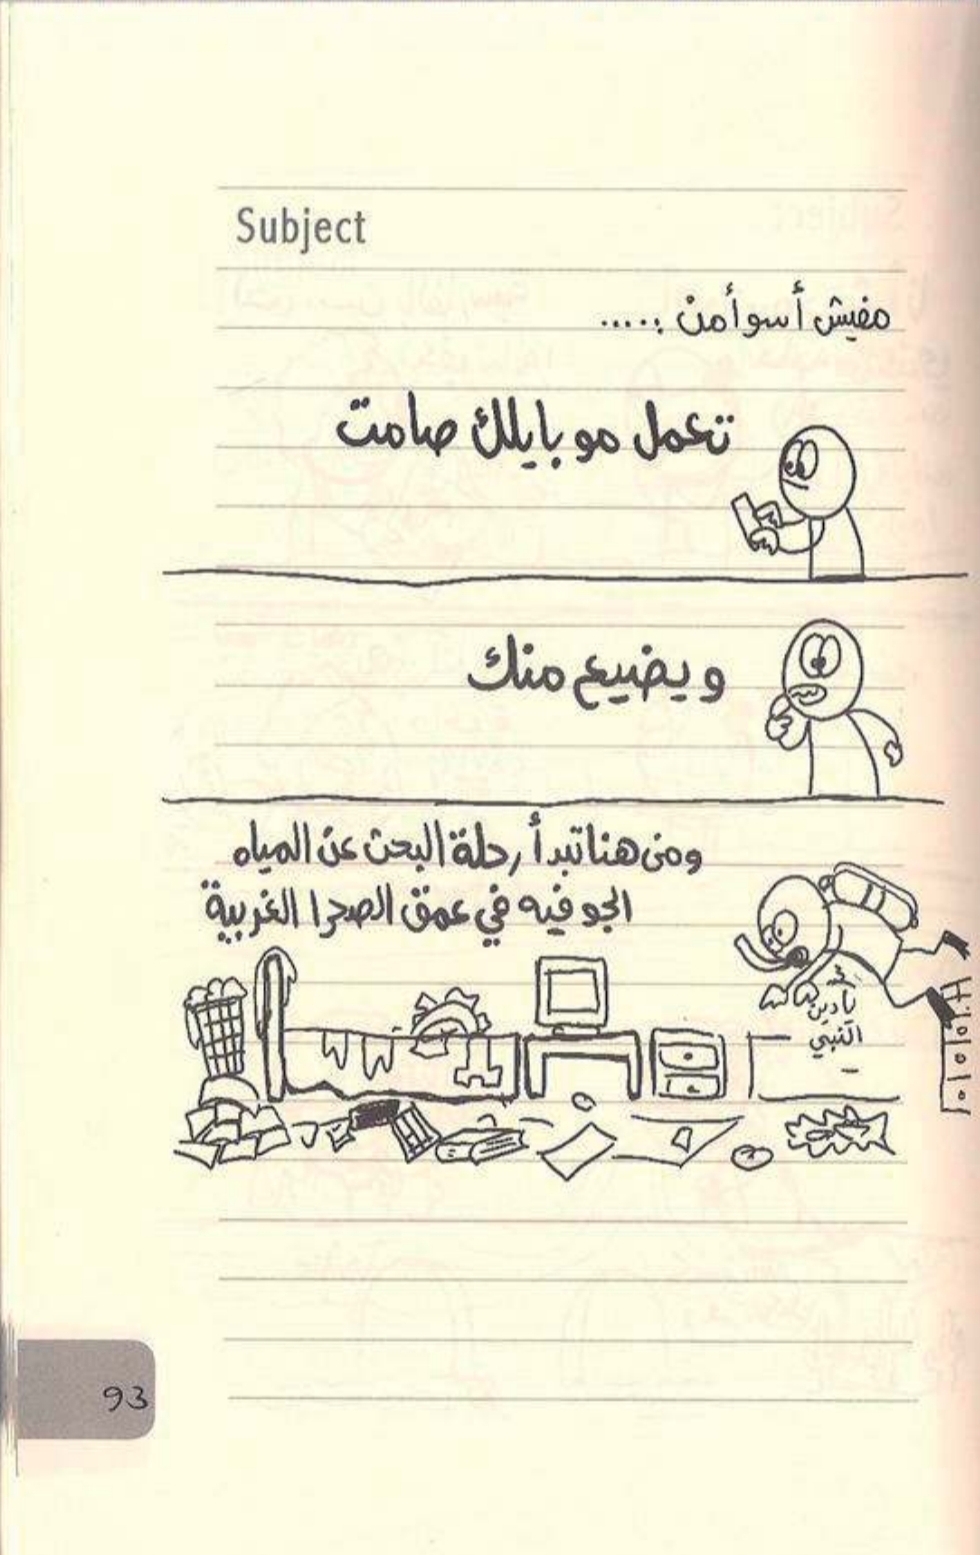 Subject
مفيش أسوأ من :.....
تعمل موبايلك صامت
ويضيع منك
ومن هنا تبدأ رحلة البحث عن المياه
الجوفيه في عمق الصحرا الغربية
يادين
النبي
93